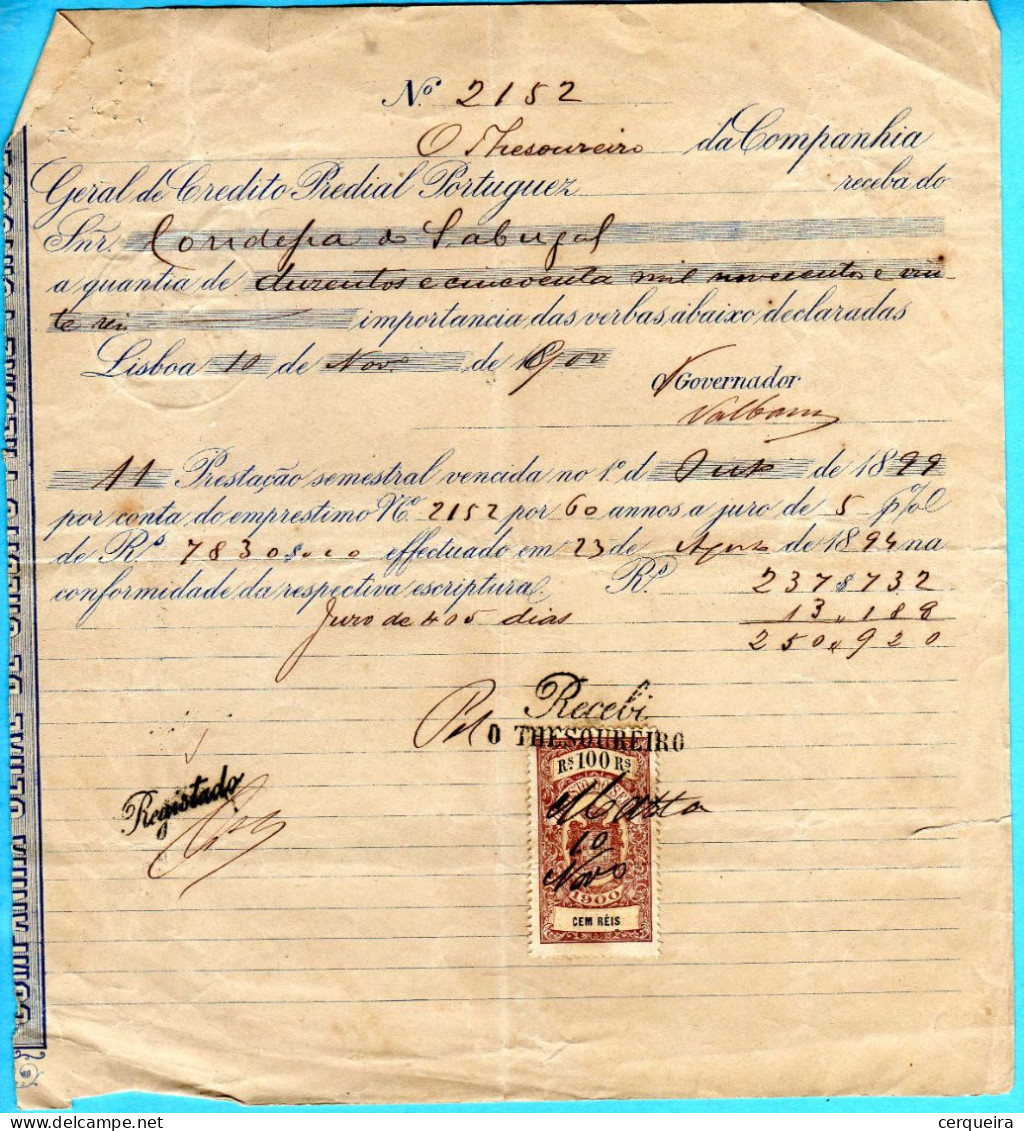 Nº 2152
O Thesoureiro da Companhia
Geral de Credito Predial Portuguez receba do
Snr. Condessa do Sabugal
a quantia de duzentos e cincoenta mil novecentos e vin-
te reis importancia das verbas abaixo declaradas
Lisboa 10 de Nov.º de 1900
O Governador
11 Prestação semestral vencida no 1º d de 1899
por conta do emprestimo Nº 2152 por 60 annos a juro de 5 p%
de Rs. 7830$000 effectuado em 23 de Agosto de 1894 na
conformidade da respectiva escriptura. Rs. 237$732
Juro de 405 dias 13,188
250,920
Recebi
Pel O THESOUREIRO
Rs 100 Rs
10
Novo
1900
CEM RÉIS
Registado
COMPANHIA GERAL DE CREDITO PREDIAL PORTUGUEZ
cerqueira